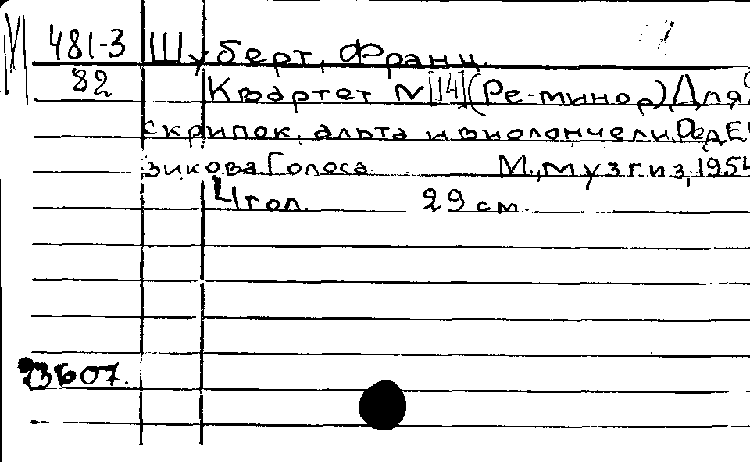 М 481-3 Шуберт, Франц.
82 Квартет №[14](Ре-минор) Для
скрипок, альта и виолончели. Ред.
зикова Голоса М., музгиз, 1954
4 гол. 29 см.